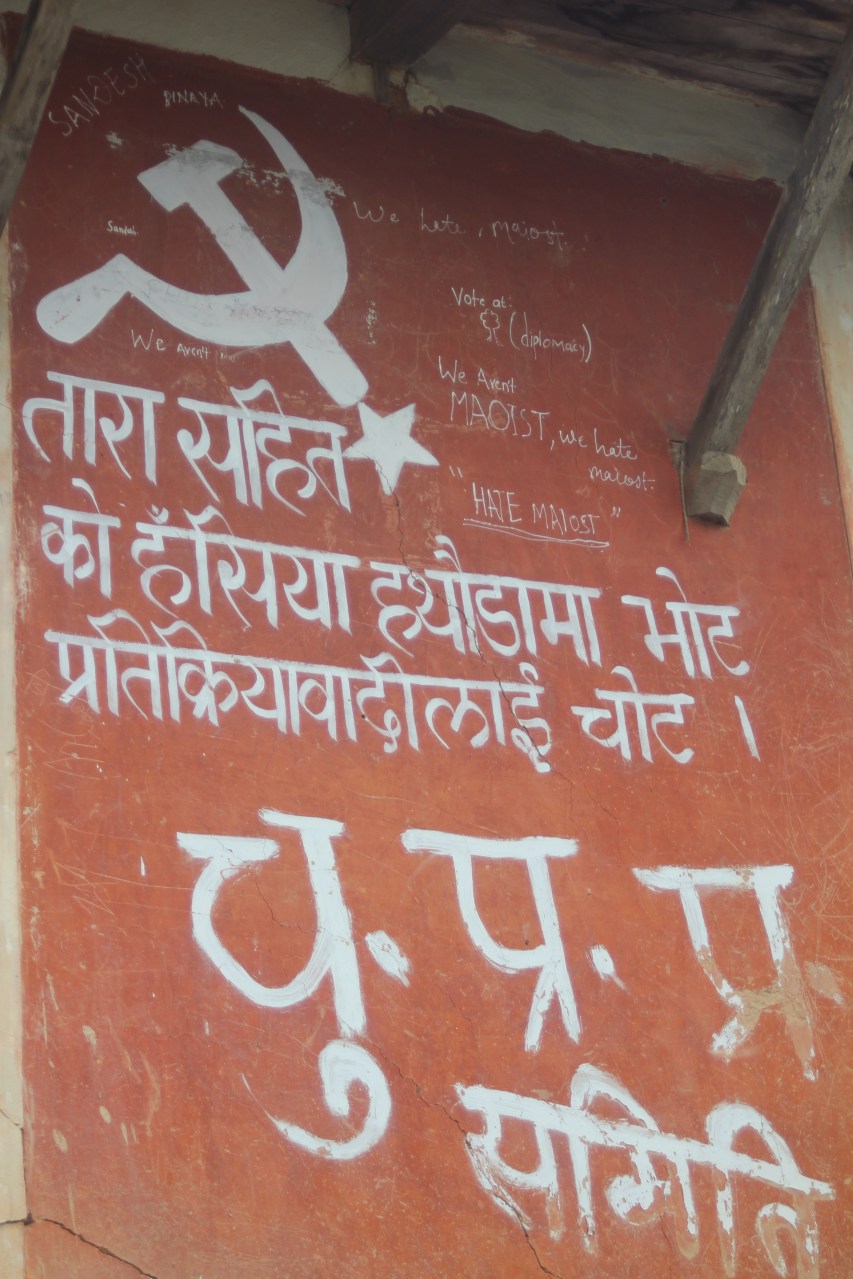 SANDESH
BINAYA
We hate, maiost.
Vote at:
(diplomacy)
We Aren't
We Arent
MAOIST, we hate
maiost.
"HATE MAIOST"
तारा सहित
को हँसिया हथौडामा भोट
प्रतिक्रियावादीलाई चोट ।
चु. प्र. प्र
समिति